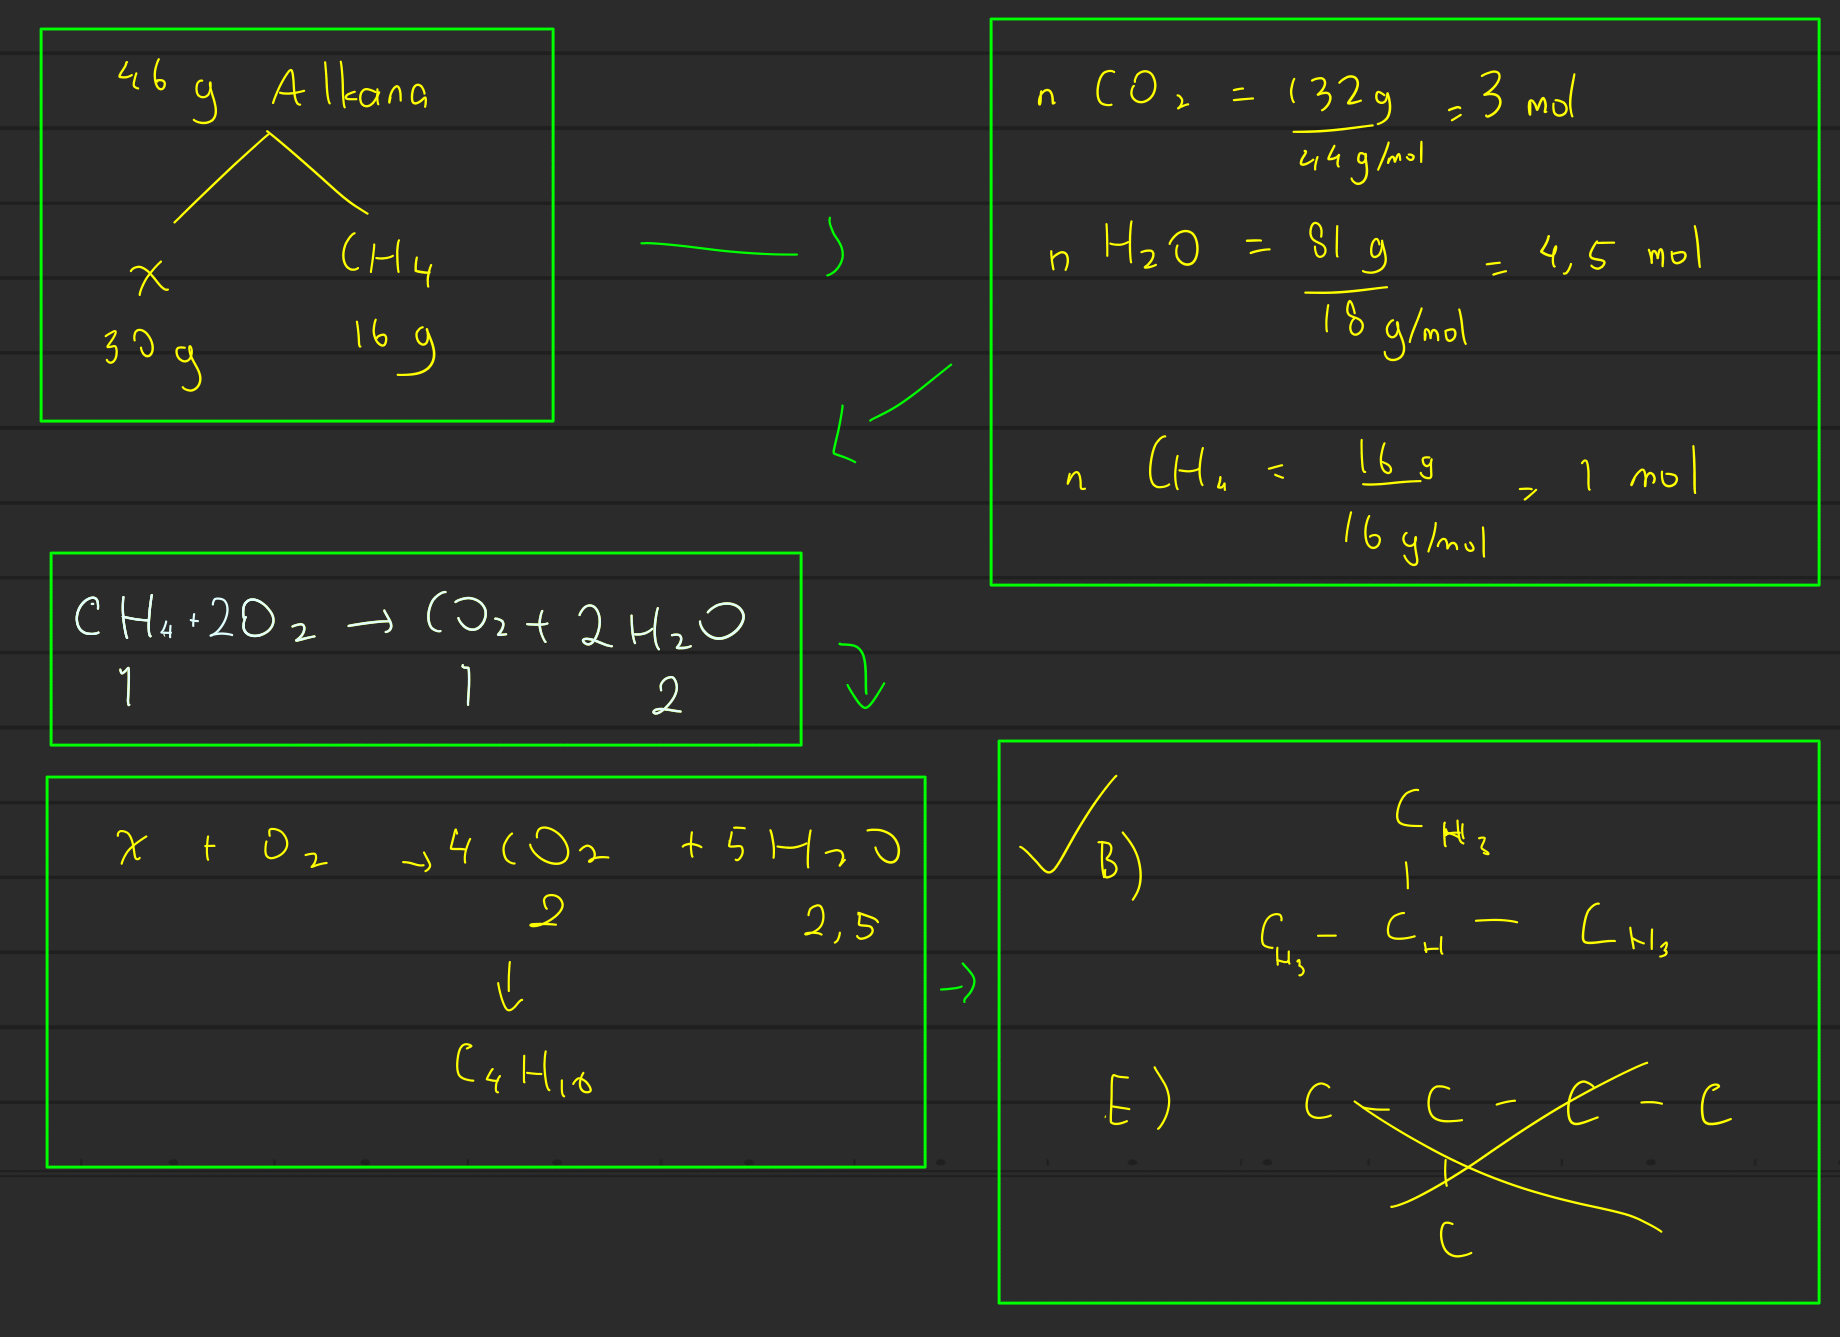 46 g Alkana
x CH4
30 g 16 g
n CO2 = 132g = 3 mol
44 g/mol
n H2O = 81 g = 4,5 mol
18 g/mol
n CH4 = 16 g = 1 mol
16 g/mol
CH4 + 2O2 → CO2 + 2H2O
1 1 2
x + O2 → 4 CO2 + 5 H2O
2 2,5
↓
C4H10
B)
CH3
|
CH3 - CH - CH3
E) C - C - C - C
|
C